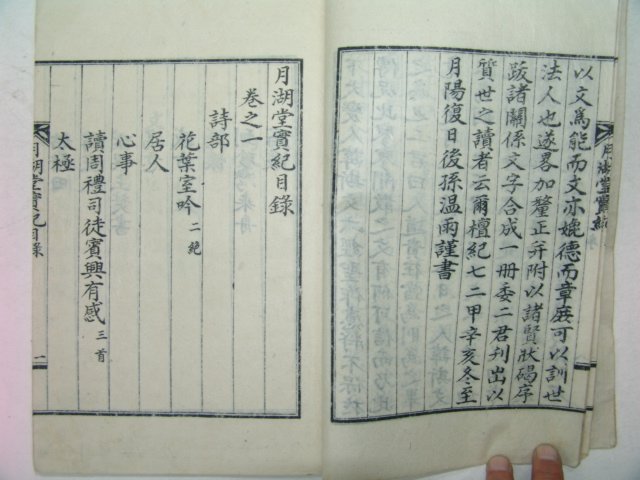 以文爲能而文亦媲德而章庶可以訓世
法人也遂畧加釐正并附以諸賢狀碣序
跋諸關係文字合成一冊委二君刊出以
質世之讀者云爾檀紀七二甲辛亥冬至
月陽復日後孫溫雨謹書
月湖堂實紀目錄
卷之一
詩部
花葉室吟 二絶
居人
心事
讀周禮司徒賓興有感 三首
太極
月湖堂實紀目錄
一
月湖堂實紀